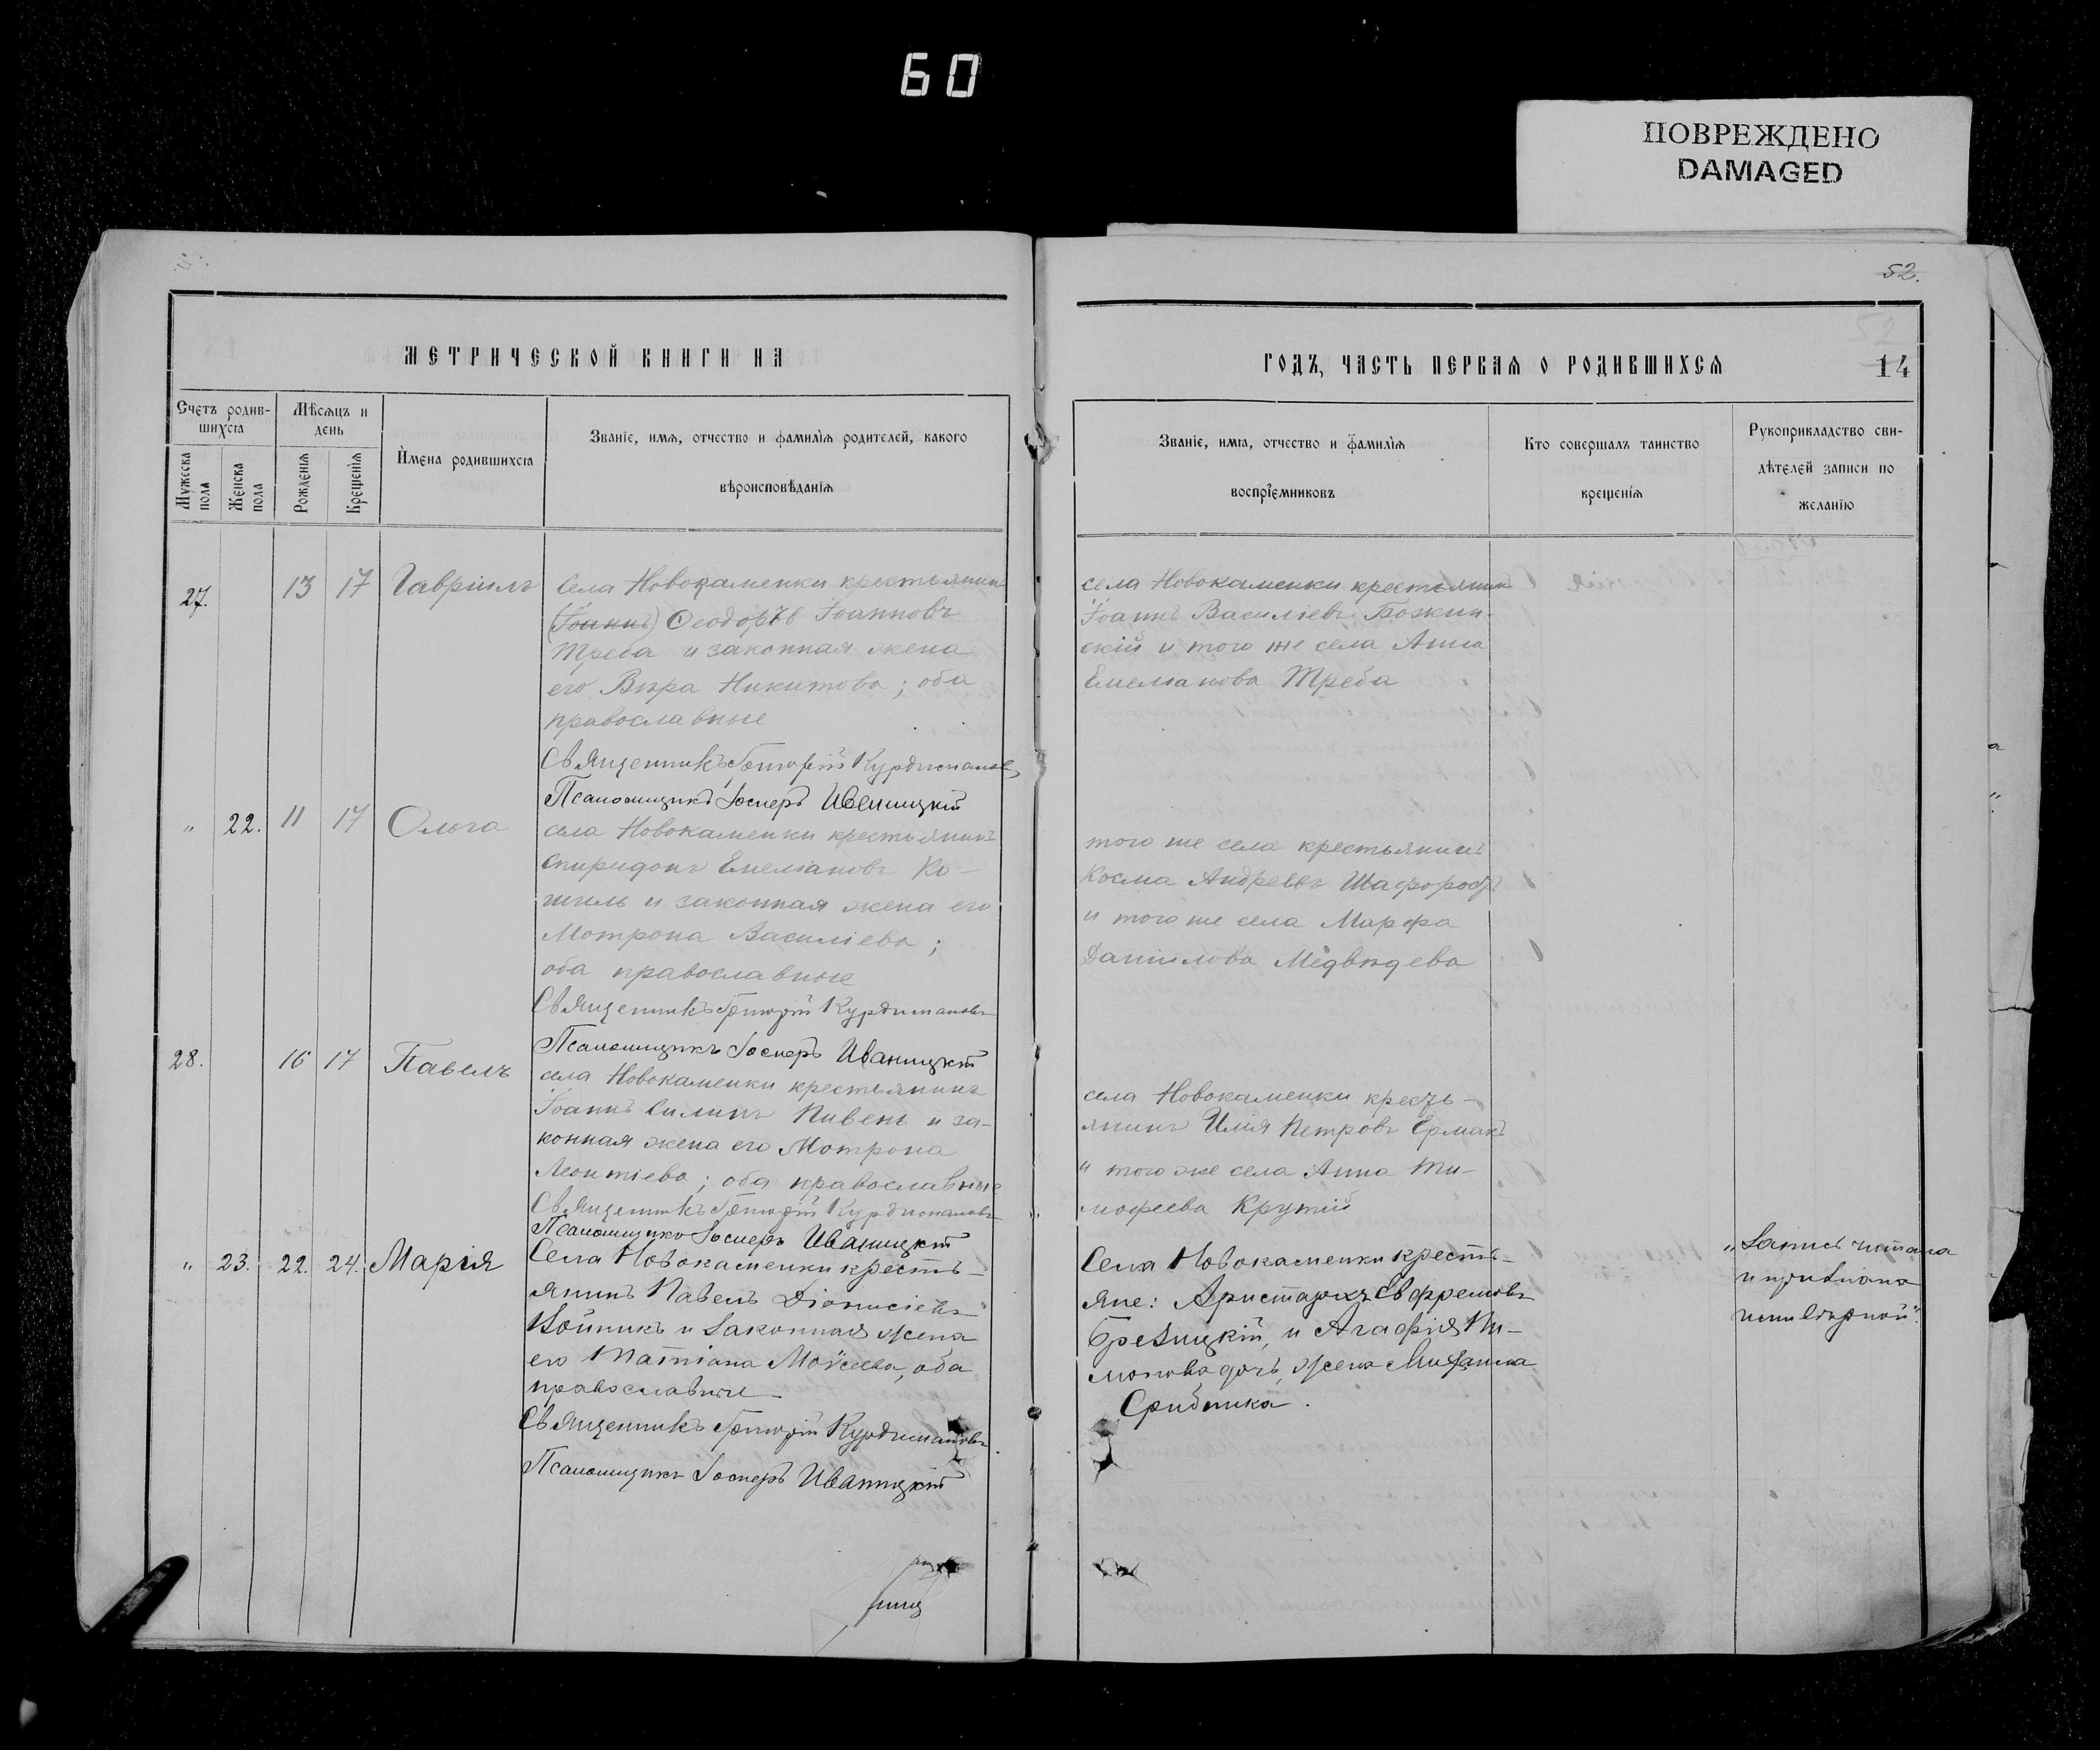 60
ПОВРЕЖДЕНО
DAMAGED
52.
МЕТРИЧЕСКОЙ КНИГИ НА
ГОДЪ, ЧАСТЬ ПЕРВАЯ О РОДИВШИХСЯ
14
Счетъ родив-
шихся
Мѣсяцъ и
день
Мужеска
пола
Женска
пола
Рожденія
Крещенія
Имена родившихся
Званіе, имя, отчество и фамилія родителей, какого
вѣроисповѣданія
Званіе, имя, отчество и фамилія
воспріемниковъ
Кто совершалъ таинство
крещенія
Рукоприкладство сви-
дѣтелей записи по
желанію
27.
13
17
Гавріилъ
Села Новокаменки крестьянинъ
(Іоаннъ) Ѳеодоръ Іоанновъ
Треба и законная жена
его Вѣра Никитова; оба
православные
Священникъ Григорій Курдимановъ
Псаломщикъ Іосифъ Иваницкій
села Новокаменки крестьянинъ
Іоаннъ Василіевъ Божин-
скій и того же села Анна
Емеліанова Треба
"
22.
11
17
Ольга
села Новокаменки крестьянинъ
Спиридонъ Емеліановъ Ко-
шель и законная жена его
Мотрона Василіева;
оба православные
Священникъ Григорій Курдимановъ
Псаломщикъ Іосифъ Иваницкій
того же села крестьянинъ
Косма Андреевъ Шафоростъ
и того же села Марфа
Даніилова Медвѣдева
28.
16
17
Павелъ
села Новокаменки крестьянинъ
Іоаннъ Силинъ Пивень и за-
конная жена его Мотрона
Леонтіева; оба православные
Священникъ Григорій Курдимановъ
Псаломщикъ Іосифъ Иваницкій
села Новокаменки кресть-
янинъ Илія Петровъ Ермакъ
и того же села Анна Ти-
мофеева Крутій
"
23.
22.
24.
Марія
Села Новокаменки кресть-
янинъ Павелъ Діонисіевъ
Войникъ и законная жена
его Татіана Моѵсеева, оба
православные
Священникъ Григорій Курдимановъ
Псаломщикъ Іосифъ Иваницкій
Села Новокаменки кресть-
яне: Аристархъ Евфремовъ
Брезицкій, и Агафія Пи-
монова дочь, жена Михаила
Срибника.
"Запись читана
и признана